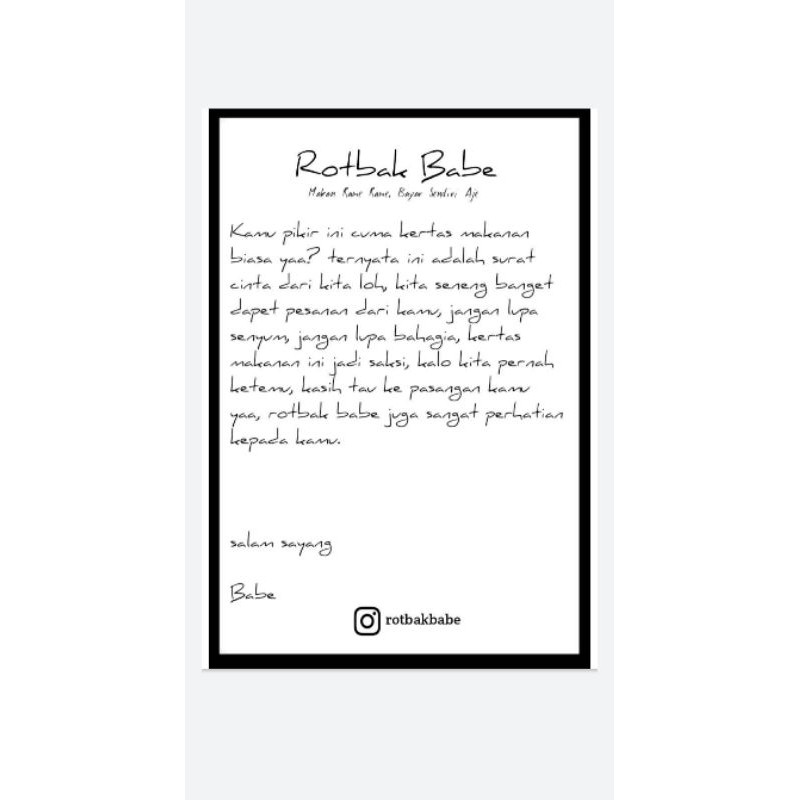 Rotbak Babe
Makan Rame Rame, Bayar Sendiri Aje
Kamu pikir ini cuma kertas makanan
biasa yaa? ternyata ini adalah surat
cinta dari kita loh, kita seneng banget
dapet pesanan dari kamu, jangan lupa
senyum, jangan lupa bahagia, kertas
makanan ini jadi saksi, kalo kita pernah
ketemu, kasih tau ke pasangan kamu
yaa, rotbak babe juga sangat perhatian
kepada kamu.
salam sayang
Babe
rotbakbabe